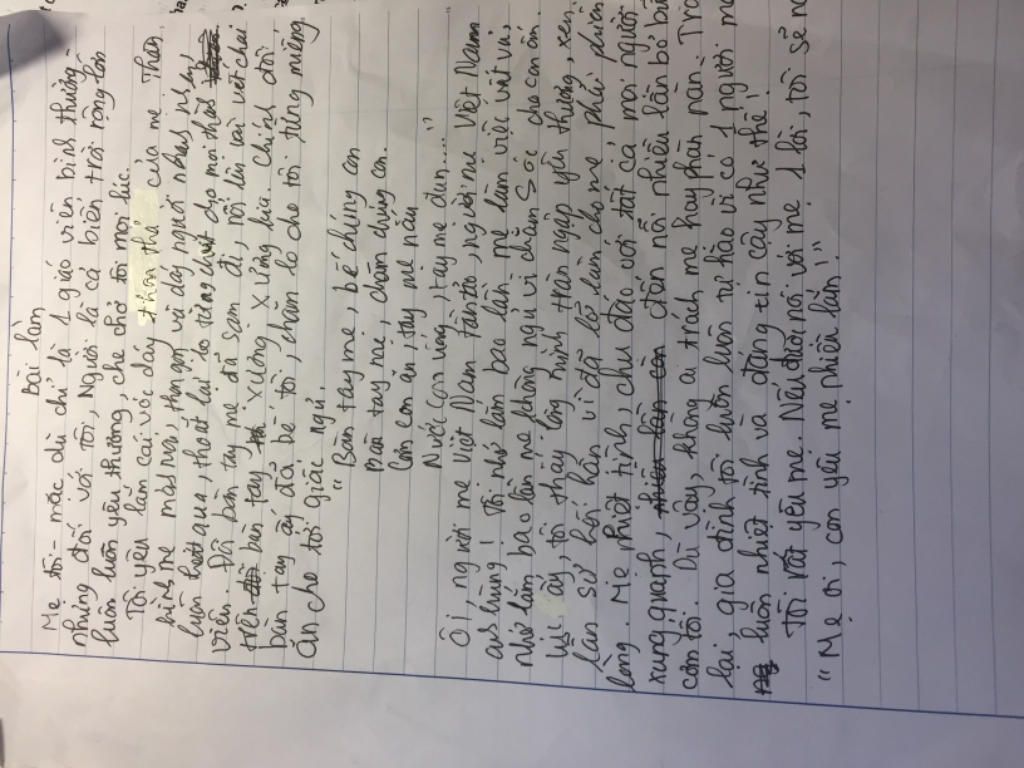 Bài làm
Mẹ tôi - mặc dù chỉ là 1 giáo viên bình thường
nhưng đối với tôi, Người là cả biển trời rộng lớn
luôn luôn yêu thương, che chở tôi mọi lúc.
Tôi yêu lắm cái vóc dáng, thân thể của mẹ. Thân
hình mẹ mảnh mai, thon gọn vì dáng người nhanh nhẹn,
luôn hoạt qua, thoắt lại lo từng chút cho mọi thành
viên. Đôi bàn tay mẹ đã sạm đi, nổi lên vài vết chai
trên bàn tay xương xương kia. Chính đôi
bàn tay ấy đã bế tôi, chăm lo cho tôi từng miếng
ăn cho tới giấc ngủ.
"Bàn tay mẹ, bế chúng con
Bàn tay mẹ, chăm chúng con.
Cơm con ăn, tay mẹ nấu
Nước con uống, tay mẹ đun..."
Ôi, người mẹ Việt Nam tần tảo, người mẹ Việt Nam
anh hùng! Tôi nhớ lắm bao lần mẹ làm việc vất vả,
nhớ lắm bao lần mẹ không ngủ vì chăm sóc cho con cái.
Lúc ấy, tôi thấy lòng mình tràn ngập yêu thương, xen
lẫn sự hối hận vì đã lỡ làm cho mẹ phải phiền
lòng. Mẹ nhiệt tình, chu đáo với tất cả mọi người
xung quanh, nhiều lần còn đến nỗi nhiều lần bỏ bê
con tôi. Dù vậy, không ai trách mẹ hay phàn nàn. Trá
lại, gia đình tôi luôn luôn tự hào vì có 1 người mẹ
luôn nhiệt tình và đáng tin cậy như thế!
Tôi rất yêu mẹ. Nếu được nói với mẹ 1 lời, tôi sẽ n
"Mẹ ơi, con yêu mẹ nhiều lắm."